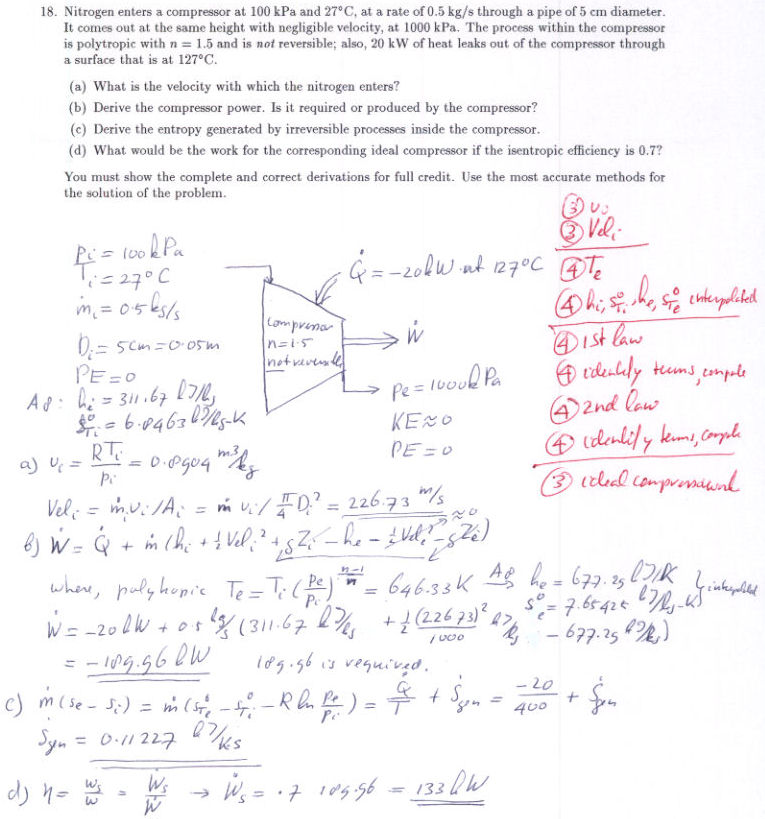 18. Nitrogen enters a compressor at 100 kPa and 27°C, at a rate of 0.5 kg/s through a pipe of 5 cm diameter.
It comes out at the same height with negligible velocity, at 1000 kPa. The process within the compressor
is polytropic with n = 1.5 and is not reversible; also, 20 kW of heat leaks out of the compressor through
a surface that is at 127°C.
(a) What is the velocity with which the nitrogen enters?
(b) Derive the compressor power. Is it required or produced by the compressor?
(c) Derive the entropy generated by irreversible processes inside the compressor.
(d) What would be the work for the corresponding ideal compressor if the isentropic efficiency is 0.7?
You must show the complete and correct derivations for full credit. Use the most accurate methods for
the solution of the problem.
③ υi
③ Veli
④ Te
④ hi, s°Ti, he, s°Te interpolated
④ 1st law
④ identify terms, compute
④ 2nd law
④ identify terms, compute
③ ideal compressor work
Pi = 100 kPa
Ti = 27°C
ṁi = 0.5 kg/s
Di = 5cm = 0.05m
PE = 0
A8: hi = 311.67 kJ/kg
s°Ti = 6.8463 kJ/kg-K
compressor
n=1.5
not reversible
Q̇ = -20kW at 127°C
Ẇ
Pe = 1000kPa
KE≈0
PE=0
a) υi = RTi/Pi = 0.8904 m³/kg
Veli = ṁυi/Ai = ṁυi/(π/4)Di² = 226.73 m/s
b) Ẇ = Q̇ + ṁ(hi + ½Veli² + gZi − he − ½Vele² − gZe) ≈0
where, polytropic Te = Ti(Pe/Pi)^((n-1)/n) = 646.33K A8 he = 677.29 kJ/K
s°e = 7.65425 kJ/kg-K } interpolated
Ẇ = -20kW + 0.5 kg/s (311.67 kJ/kg + ½(226.73)²/1000 kJ/kg − 677.29 kJ/kg)
= -189.96 kW 189.96 is required.
c) ṁ(se − si) = ṁ(s°Te − s°Ti − R ln Pe/Pi) = Q̇/T + Ṡgen = -20/400 + Ṡgen
Ṡgen = 0.11227 kJ/Ks
d) η = ws/w = Ẇs/Ẇ → Ẇs = .7 189.96 = 133 kW